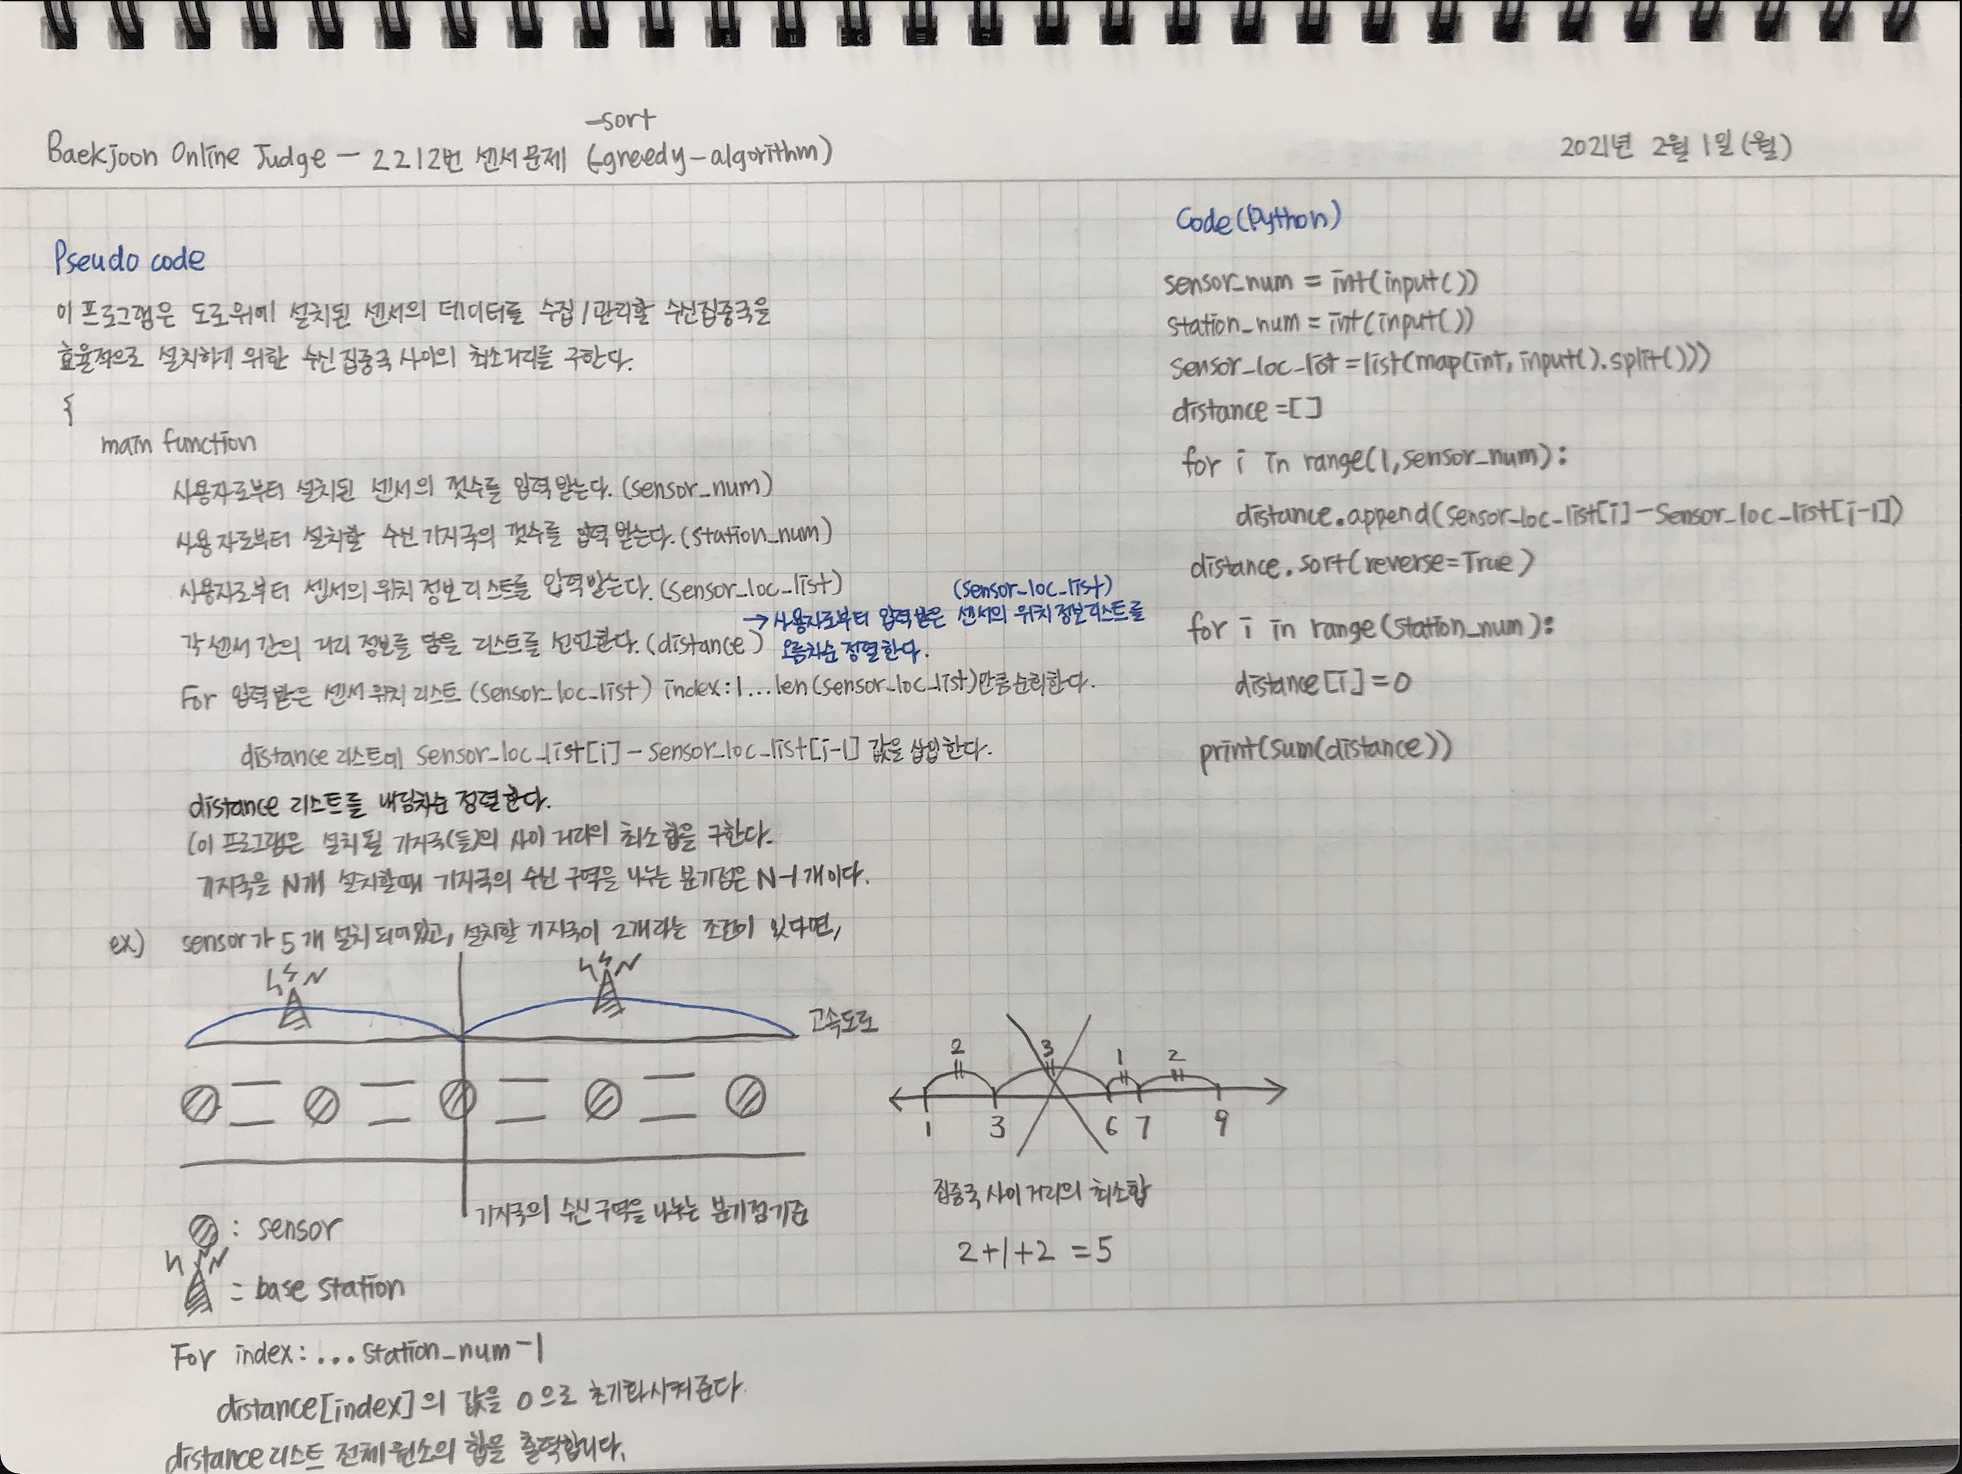 -sort
Baekjoon Online Judge - 2212번 센서 문제 (-greedy-algorithm)
2021년 2월 1일 (월)
Pseudo code
이 프로그램은 도로위에 설치된 센서의 데이터를 수집/관리할 수신집중국을
효율적으로 설치하게 위한 수신 집중국 사이의 최소거리를 구한다.
{
main function
사용자로부터 설치된 센서의 갯수를 입력 받는다. (sensor_num)
사용자로부터 설치할 수신 기지국의 갯수를 입력 받는다. (station_num)
사용자로부터 센서의 위치 정보 리스트를 입력받는다. (sensor_loc_list)
(sensor_loc_list)
→ 사용자로부터 입력받은 센서의 위치 정보리스트를
오름차순 정렬한다.
각 센서 간의 거리 정보를 담을 리스트를 선언한다. (distance)
For 입력받은 센서 위치 리스트 (sensor_loc_list) index:1...len(sensor_loc_list)만큼 순회한다.
distance 리스트에 sensor_loc_list[i]-sensor_loc_list[i-1] 값을 삽입한다.
distance 리스트를 내림차순 정렬한다.
(이 프로그램은 설치될 기지국(들)의 사이 거리의 최소합을 구한다.
기지국을 N개 설치할때 기지국의 수신 구역을 나누는 분기점은 N-1개이다.
ex) sensor가 5개 설치되어있고, 설치할 기지국이 2개라는 조건이 있다면,
고속도로
기지국의 수신 구역을 나누는 분기점기준
: sensor
= base station
2 3 1 2
1 3 6 7 9
집중국 사이 거리의 최소합
2+1+2 =5
For index: ...station_num-1
distance[index]의 값을 0으로 초기화시켜준다.
distance 리스트 전체 원소의 합을 출력합니다.
Code (Python)
sensor_num = int(input())
station_num = int(input())
sensor_loc_list =list(map(int, input().split()))
distance =[]
for i in range(1,sensor_num):
distance.append(sensor_loc_list[i]-sensor_loc_list[i-1])
distance.sort(reverse=True)
for i in range(station_num):
distance[i]=0
print(sum(distance))